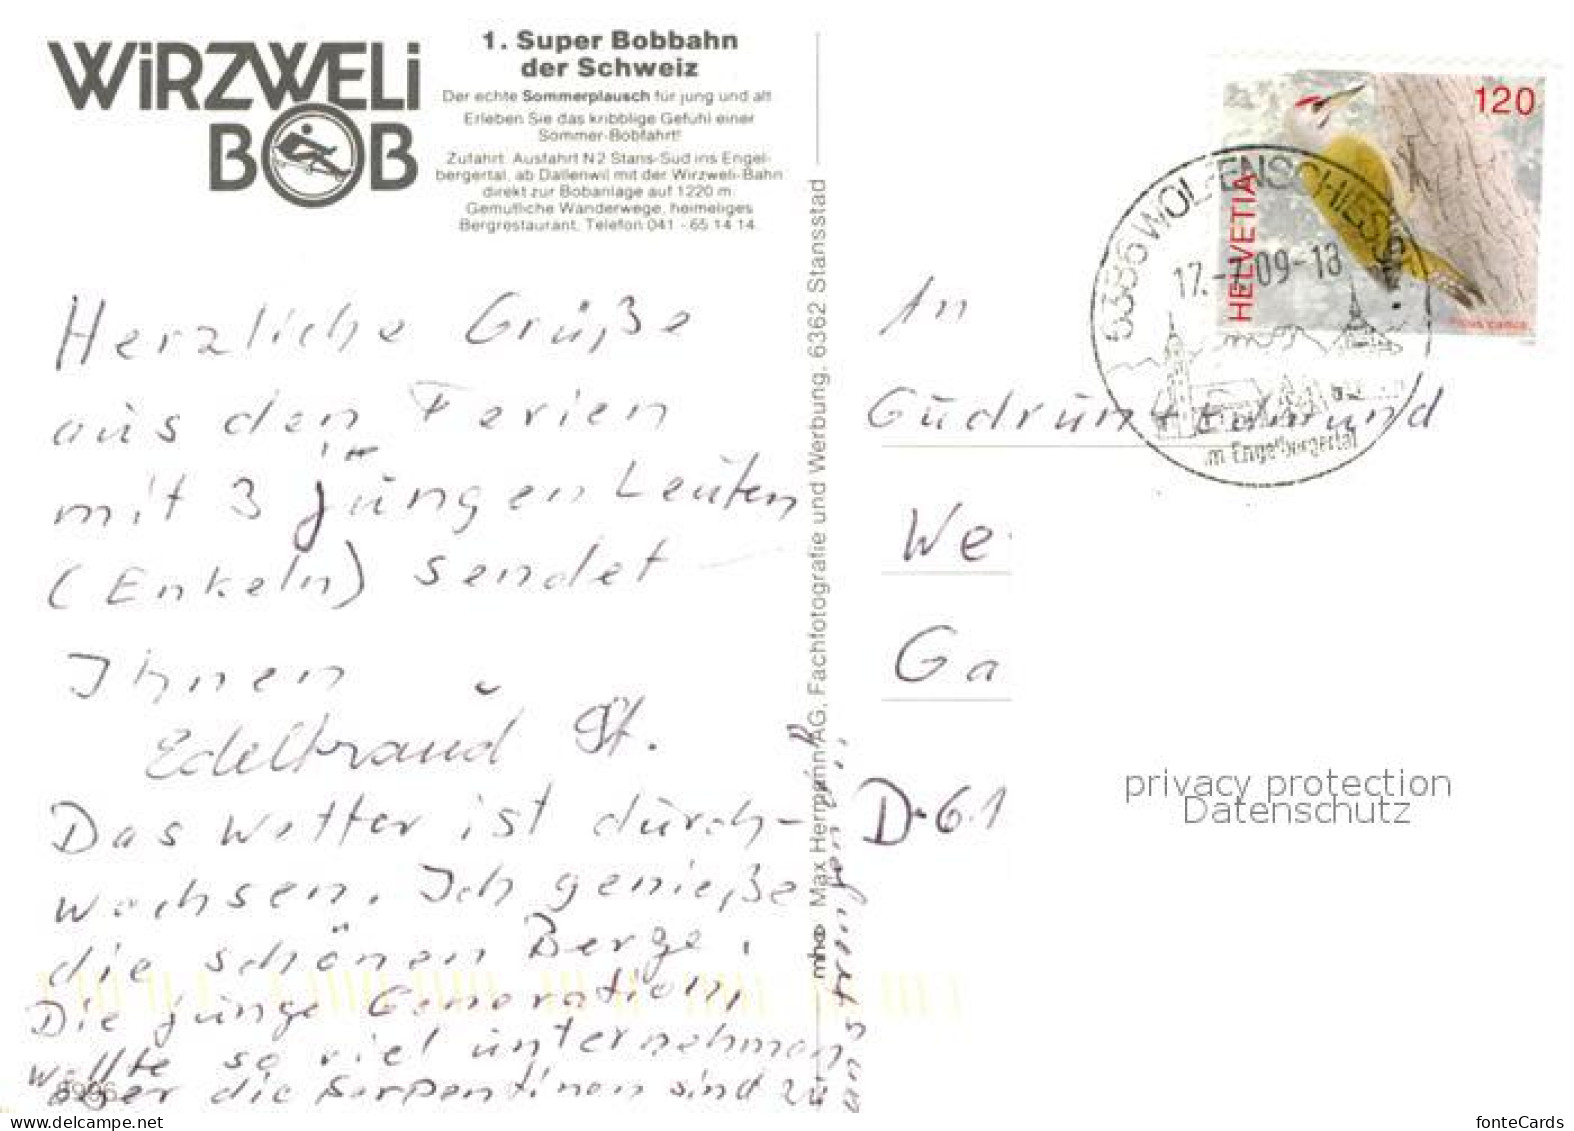 WiRZWELi
BOB
1. Super Bobbahn
der Schweiz
Der echte Sommerplausch für jung und alt
Erleben Sie das kribblige Gefühl einer
Sommer-Bobfahrt!
Zufahrt: Ausfahrt N2 Stans-Süd ins Engel-
bergertal, ab Dallenwil mit der Wirzweli-Bahn
direkt zur Bobanlage auf 1220 m.
Gemütliche Wanderwege, heimeliges
Bergrestaurant, Telefon 041 - 65 14 14.
Herzliche Grüße
aus den Ferien
mit 3 jungen Leuten
(Enkeln) sendet
Ihnen
Edeltraud St.
Das Wetter ist durch-
wachsen. Ich genieße
die schönen Berge,
Die junge Generation,
wollte so viel unternehmen
aber die Serpentinen sind zu
anstrengend
8996
mha Max Hermann AG, Fachfotografie und Werbung, 6362 Stansstad
120
HELVETIA
Picus canus
6386 WOLFENSCHIESSEN
17. 09-18
im Engelbergertal
An
Gudrun + Edmund
We
Ga
D-61
privacy protection
Datenschutz
fonteCards